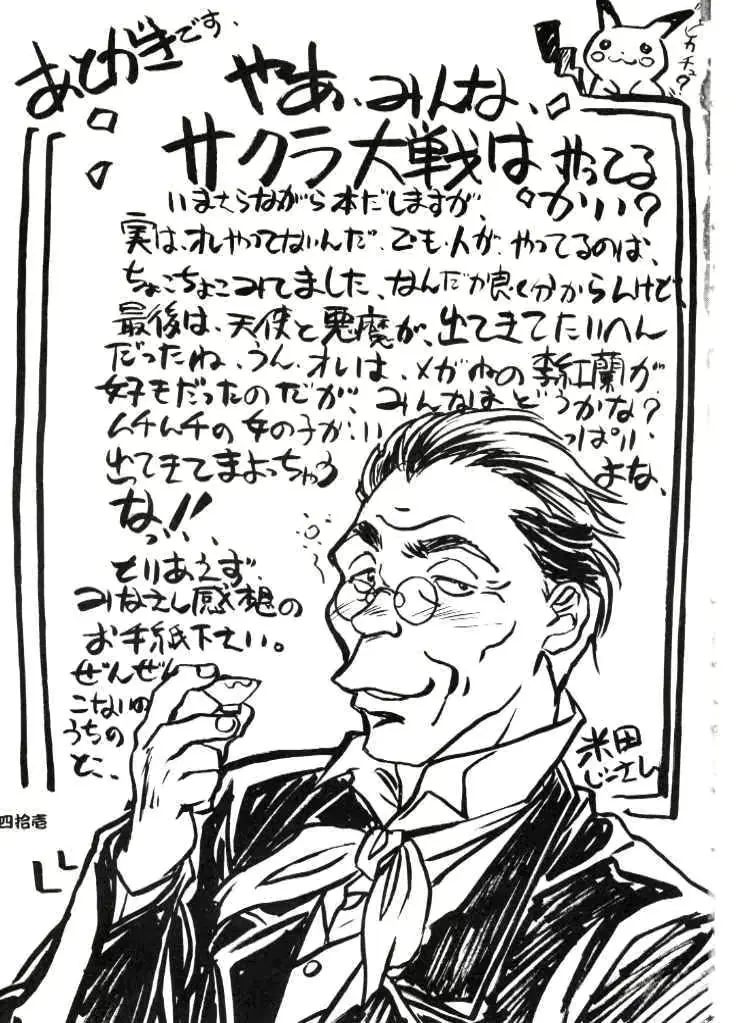 あとがきです。
ピカチュ?
やあ、みんな、
サクラ大戦は、やってる
かい?
いまさらながら本だしますが、
実は、オレやってないんだ、でも、人が、やってるのは、
ちょこちょこみてました、なんだか良く分からんけど、
最後は、天使と悪魔が、出てきてたいへん
だったね、うん、オレは、メガネの李紅蘭が
好きだったのだが、みんなはどうかな?
ムチムチの女の子が、いっぱい、
出てきてまよっちゃう
よな、
なっ!!
とりあえず、
みなさん感想の
お手紙下さい。
ぜんぜん
こないの
うちの
とこ、
米田
じーさん
四拾壱